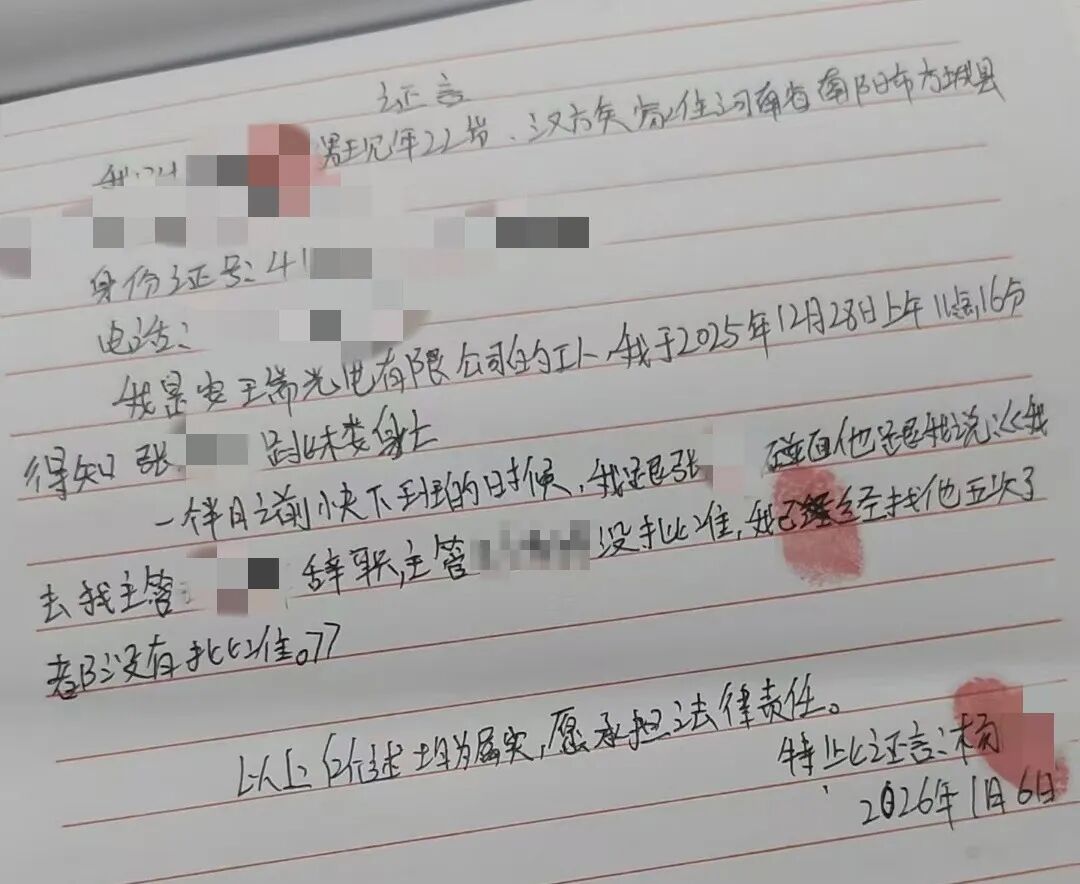 证言
我叫 男现年22岁、汉族家住河南省南阳市方城县
身份证号:41
电话:
我是安 瑞光电有限公司的工人,我于2025年12月28日上午11点16分
得知张 跳楼 身亡
一个月之前 快下班的时候,我跟张 碰面他跟我说:《我
去找主管 辞职,主管 没批准,我已经找他五次了
都没有批准。》
以上 述均为属实,愿承担法律责任。
特此证言:杨
2026年1月6日